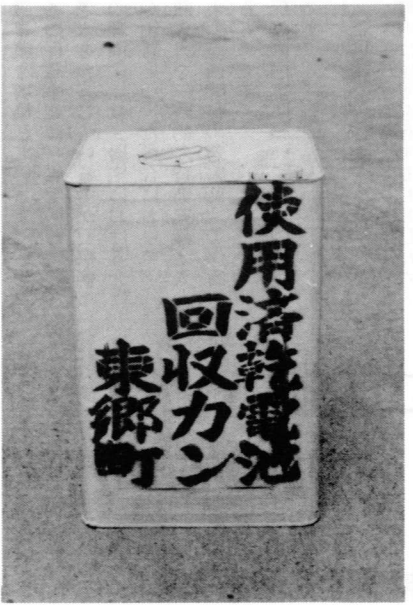 使用済乾電池
回収カン
東郷町